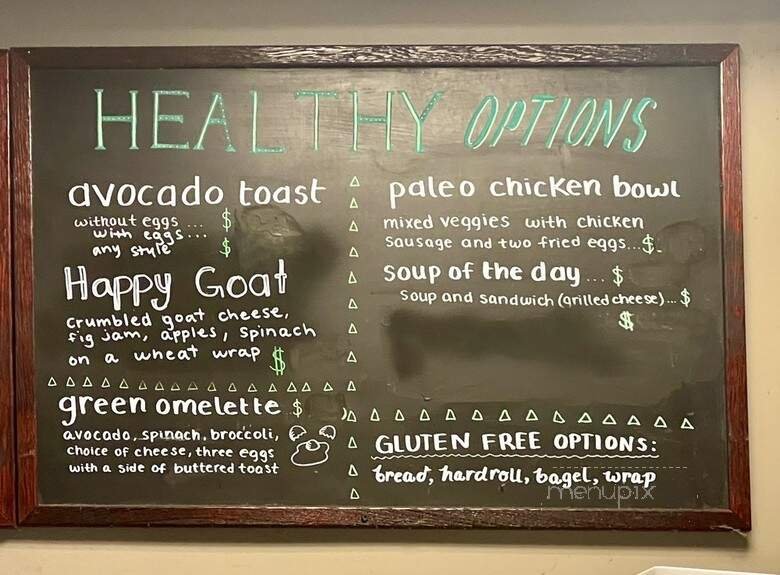 HEALTHY OPTIONS
avocado toast
without eggs ... $
with eggs...
any style $
Happy Goat
crumbled goat cheese,
fig jam, apples, spinach
on a wheat wrap $
green omelette $
avocado, spinach, broccoli,
choice of cheese, three eggs
with a side of buttered toast
paleo chicken bowl
mixed veggies with chicken
sausage and two fried eggs...$
soup of the day ... $
soup and sandwich (grilled cheese)... $
$
GLUTEN FREE OPTIONS:
bread, hardroll, bagel, wrap
menupix